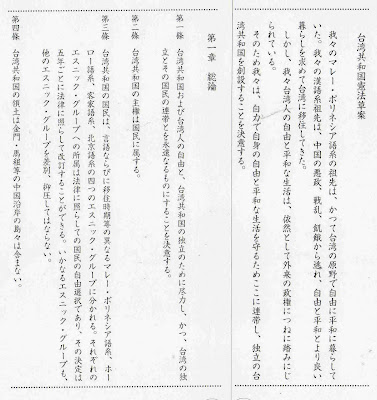 台湾共和国憲法草案
我々のマレー・ポリネシア語系の祖先は、かつて台湾の原野で自由に平和に暮らして
いた。我々の漢語系祖先は、中国の悪政、戦乱、飢餓から逃れ、自由と平和とより良い
暮らしを求めて台湾に移住してきた。
しかし、我々台湾人の自由と平和な生活は、依然として外来の政権につねに踏みにじ
られている。
そのため我々は、自力で自身の自由と平和な生活を守るためここに連帯し、独立の台
湾共和国を創設することを決意する。
第一章 総論
第一條 台湾共和国および台湾人の自由と、台湾共和国の独立のために尽力し、かつ、台湾の独
立とその国民の連帯とを永遠なるものにすることを決意する。
第二條 台湾共和国の主権は国民に属する。
第三條 台湾共和国の国民は、言語ならびに移住時期等の異なるマレー・ポリネシア語系、ホー
ロー語系、客家語系、北京語系の四つのエスニック・グループに分かれる。それぞれの
エスニック・グループへの所属は法律に照らしての国民の自由選択であり、その決定は
五年ごとに法律に照らして改訂することができる。いかなるエスニック・グループも、
他のエスニック・グループを差別、抑圧してはならない。
第四條 台湾共和国の領土は金門・馬祖等の中国沿岸の島々は含まない。